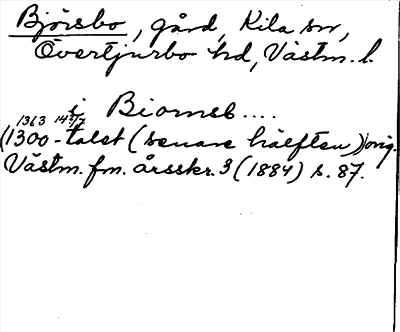 Björsbo, gård, Kila sn,
Övertjurbo hd, Västm. l.
i Biornsb....
1363 14 2/7
(1300-talet (senare hälften)) orig.
Västm. fm. årsskr. 3 (1884) s. 87.